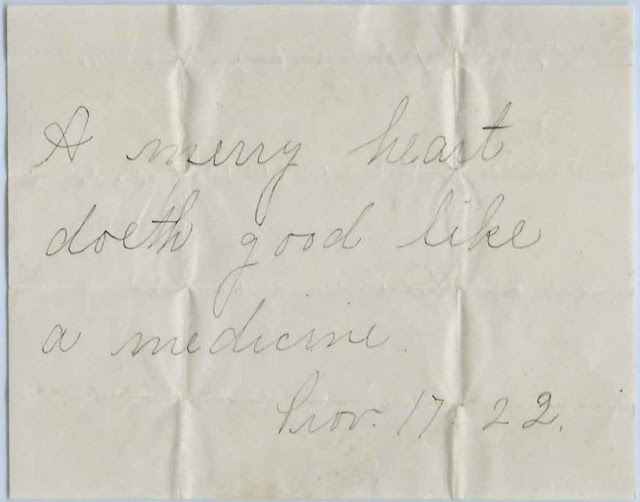 A merry heart
doeth good like
a medicine.
Prov. 17. 22.